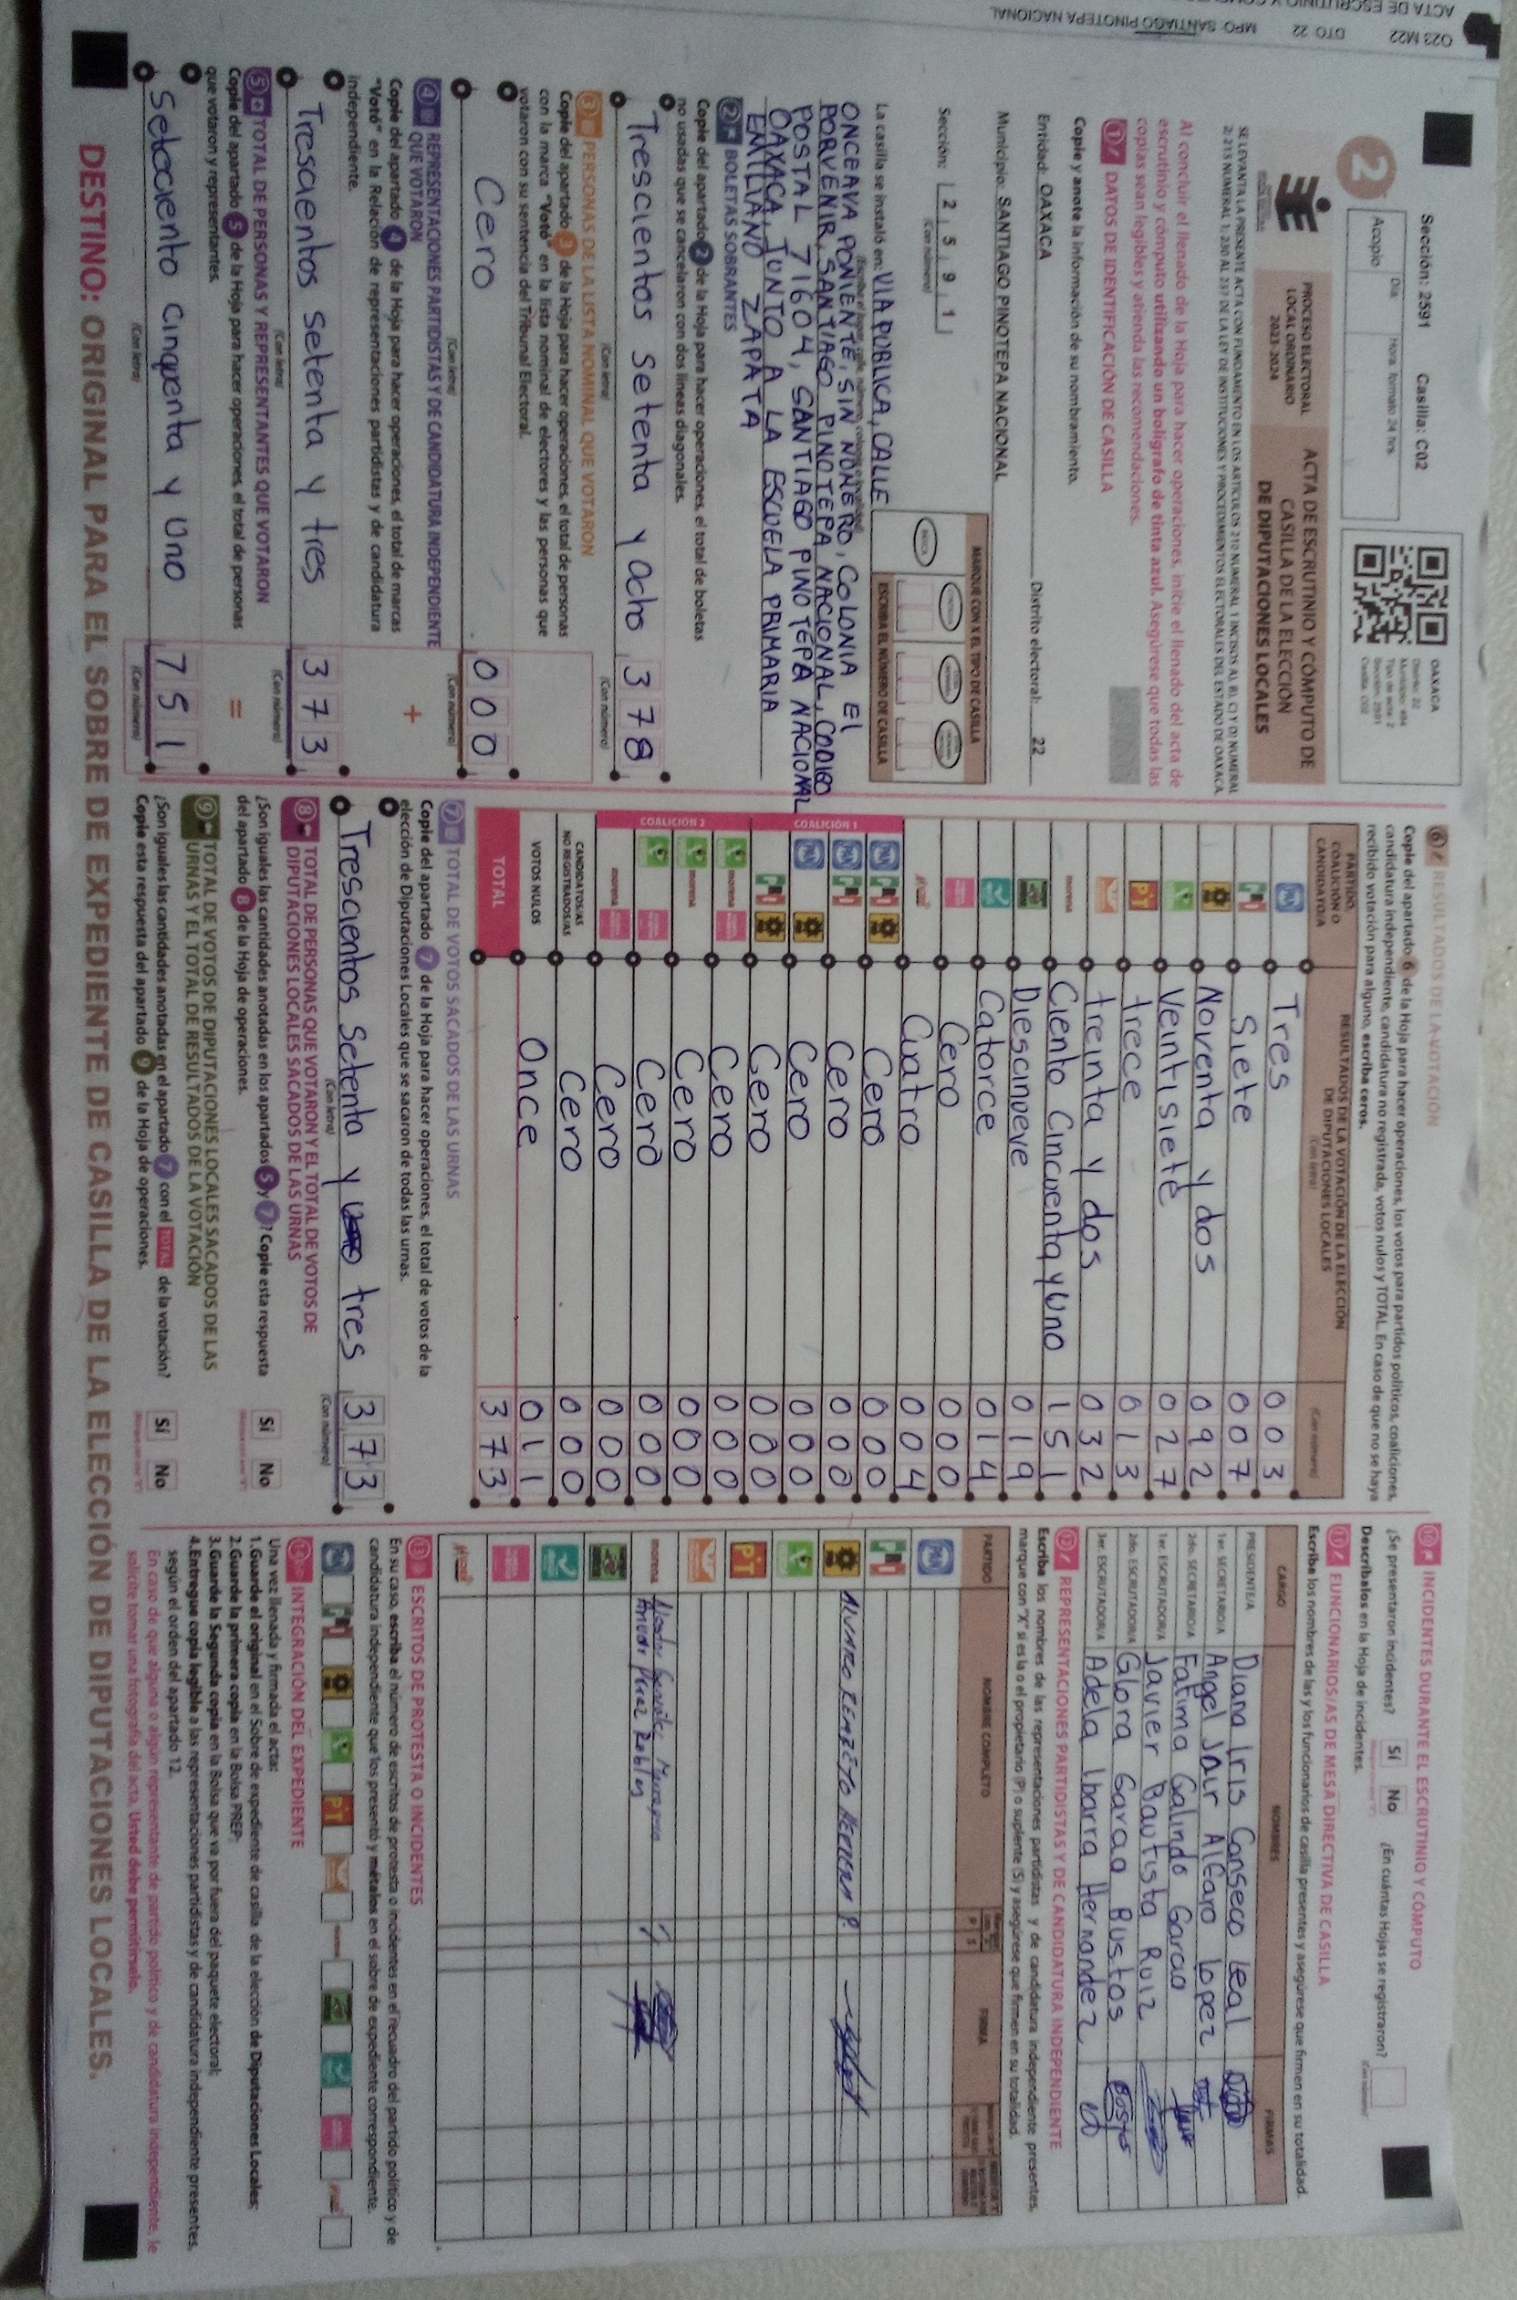 Sección: 2591 Casilla: C02
Acopio
Día
Hora formato 24 hrs
OAXACA
2
PROCESO ELECTORAL
LOCAL ORDINARIO
2023-2024
ACTA DE ESCRUTINIO Y CÓMPUTO DE
CASILLA DE LA ELECCIÓN
DE DIPUTACIONES LOCALES
Al concluir el llenado de la Hoja para hacer operaciones, inicie el llenado del acta de
escrutinio y cómputo utilizando un bolígrafo de tinta azul. Asegúrese que todas las
copias sean legibles y atienda las recomendaciones.
1 DATOS DE IDENTIFICACIÓN DE CASILLA
Copie y anote la información de su nombramiento.
Entidad: OAXACA Distrito electoral: 22
Municipio: SANTIAGO PINOTEPA NACIONAL
Sección: 2 5 9 1
(Con número)
MARQUE CON X EL TIPO DE CASILLA
ESCRIBA EL NÚMERO DE CASILLA
La casilla se instaló en: VIA PUBLICA, CALLE
ONCEAVA PONIENTE, SIN NÚMERO, COLONIA EL
PORVENIR, SANTIAGO PINOTEPA NACIONAL, CODIGO
POSTAL 71604, SANTIAGO PINOTEPA NACIONAL
OAXACA, JUNTO A LA ESCUELA PRIMARIA
EMILIANO ZAPATA
2 BOLETAS SOBRANTES
Copie del apartado 2 de la Hoja para hacer operaciones, el total de boletas
no usadas que se cancelaron con dos líneas diagonales.
Trescientos setenta y ocho 3 7 8
(Con letra) (Con número)
3 PERSONAS DE LA LISTA NOMINAL QUE VOTARON
Copie del apartado 3 de la Hoja para hacer operaciones, el total de personas
con la marca "Votó" en la lista nominal de electores y las personas que
votaron con su sentencia del Tribunal Electoral.
Cero 0 0 0
(Con letra) (Con número)
4 REPRESENTACIONES PARTIDISTAS Y DE CANDIDATURA INDEPENDIENTE
QUE VOTARON
Copie del apartado 4 de la Hoja para hacer operaciones, el total de marcas
"Votó" en la Relación de representaciones partidistas y de candidatura
independiente.
+
Tresaentos setenta y tres 3 7 3
(Con letra) (Con número)
5 TOTAL DE PERSONAS Y REPRESENTANTES QUE VOTARON
Copie del apartado 5 de la Hoja para hacer operaciones, el total de personas
que votaron y representantes.
=
Setecciento cinquenta y uno 7 5 1
(Con letra) (Con número)
6 RESULTADOS DE LA VOTACIÓN
Copie del apartado 6 de la Hoja para hacer operaciones, los votos para partidos políticos, coaliciones,
candidatura independiente, candidatura no registrada, votos nulos y TOTAL. En caso de que no se haya
recibido votación para alguno, escriba ceros.
PARTIDO,
COALICIÓN O
CANDIDATO/A
RESULTADOS DE LA VOTACIÓN DE LA ELECCIÓN
DE DIPUTACIONES LOCALES
(Con letra)
(Con número)
PAN Tres 0 0 3
PRI Siete 0 0 7
Noventa y dos 0 9 2
Veintisiete 0 2 7
PT trece 0 1 3
treinta y dos 0 3 2
morena Ciento Cincuenta y uno 1 5 1
Diescinueve 0 1 9
Catorce 0 1 4
Cero 0 0 0
Cuatro 0 0 4
COALICIÓN 1
Cero 0 0 0
Cero 0 0 0
Cero 0 0 0
Cero 0 0 0
COALICIÓN 2
morena Cero 0 0 0
morena Cero 0 0 0
Cero 0 0 0
morena Cero 0 0 0
CANDIDATOS/AS
NO REGISTRADOS/AS Cero 0 0 0
VOTOS NULOS Once 0 1 1
TOTAL 3 7 3
7 TOTAL DE VOTOS SACADOS DE LAS URNAS
Copie del apartado 7 de la Hoja para hacer operaciones, el total de votos de la
elección de Diputaciones Locales que se sacaron de todas las urnas.
Tresaentos setenta y tres 3 7 3
(Con letra) (Con número)
8 TOTAL DE PERSONAS QUE VOTARON Y EL TOTAL DE VOTOS DE
DIPUTACIONES LOCALES SACADOS DE LAS URNAS
¿Son iguales las cantidades anotadas en los apartados 5 y 7? Copie esta respuesta
del apartado 8 de la Hoja de operaciones.
Sí No
9 TOTAL DE VOTOS DE DIPUTACIONES LOCALES SACADOS DE LAS
URNAS Y EL TOTAL DE RESULTADOS DE LA VOTACIÓN
¿Son iguales las cantidades anotadas en el apartado 7 con el TOTAL de la votación?
Copie esta respuesta del apartado 9 de la Hoja de operaciones.
Sí No
10 INCIDENTES DURANTE EL ESCRUTINIO Y CÓMPUTO
¿Se presentaron incidentes? Sí No ¿En cuántas Hojas se registraron?
Descríbalos en la Hoja de incidentes.
11 FUNCIONARIOS/AS DE MESA DIRECTIVA DE CASILLA
Escriba los nombres de las y los funcionarios de casilla presentes y asegúrese que firmen en su totalidad.
CARGO NOMBRES FIRMAS
PRESIDENTE/A Diana Iris Canseco Leal
1er. SECRETARIO/A Angel Jair Alfaro Lopez
2do. SECRETARIO/A Fatima Galindo Garcia
1er. ESCRUTADOR/A Javier Bautista Ruiz
2do. ESCRUTADOR/A Gloria Garcia Bustos
3er. ESCRUTADOR/A Adela Ibarra Hernandez
12 REPRESENTACIONES PARTIDISTAS Y DE CANDIDATURA INDEPENDIENTE
Escriba los nombres de las representaciones partidistas y de candidatura independiente presentes,
marque con "X" si es la o el propietario (P) o suplente (S) y asegúrese que firmen en su totalidad.
PARTIDO NOMBRE COMPLETO FIRMA
13 ESCRITOS DE PROTESTA O INCIDENTES
En su caso, escriba el número de escritos de protesta o incidentes en el recuadro del partido político y de
candidatura independiente que los presentó y métalos en el sobre de expediente correspondiente.
14 INTEGRACIÓN DEL EXPEDIENTE
Una vez llenada y firmada el acta:
1.Guarde el original en el Sobre de expediente de casilla de la elección de Diputaciones Locales;
2.Guarde la primera copia en la Bolsa PREP;
3.Guarde la Segunda copia en la Bolsa que va por fuera del paquete electoral;
4.Entregue copia legible a las representaciones partidistas y de candidatura independiente presentes,
según el orden del apartado 12.
En caso de que alguna o algún representante de partido político y de candidatura independiente, le
solicite tomar una fotografía del acta, Usted debe permitírselo.
DESTINO: ORIGINAL PARA EL SOBRE DE EXPEDIENTE DE CASILLA DE LA ELECCIÓN DE DIPUTACIONES LOCALES.
023 M22 DTO 22 MPO: SANTIAGO PINOTEPA NACIONAL